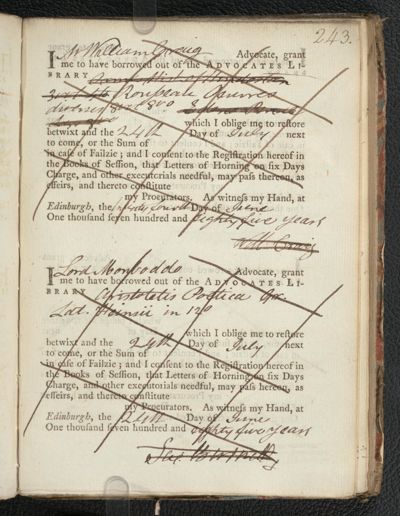 243.
I Mr William Craig Advocate, grant
me to have borrowed out of the ADVOCATES LI-
BRARY
Rousseau Oeuvres
8vo
which I oblige me to restore
betwixt and the 24th Day of July next
to come, or the Sum of
in case of Failzie; and I consent to the Registration hereof in
the Books of Session, that Letters of Horning on six Days
Charge, and other executorials needful, may pass thereon, as
effeirs, and thereto constitute
my Procurators. As witness my Hand, at
Edinburgh, the Day of June
One thousand seven hundred and eighty five years
Will Craig
I Lord Monboddo Advocate, grant
me to have borrowed out of the ADVOCATES LI-
BRARY Aristotelis Poetica Gr.
Lat. Heinsii in 12o
which I oblige me to restore
betwixt and the 24th Day of July next
to come, or the Sum of
in case of Failzie; and I consent to the Registration hereof in
the Books of Session, that Letters of Horning on six Days
Charge, and other executorials needful, may pass hereon, as
effeirs, and thereto constitute
my Procurators. As witness my Hand, at
Edinburgh, the 24th Day of June
One thousand seven hundred and eighty five years